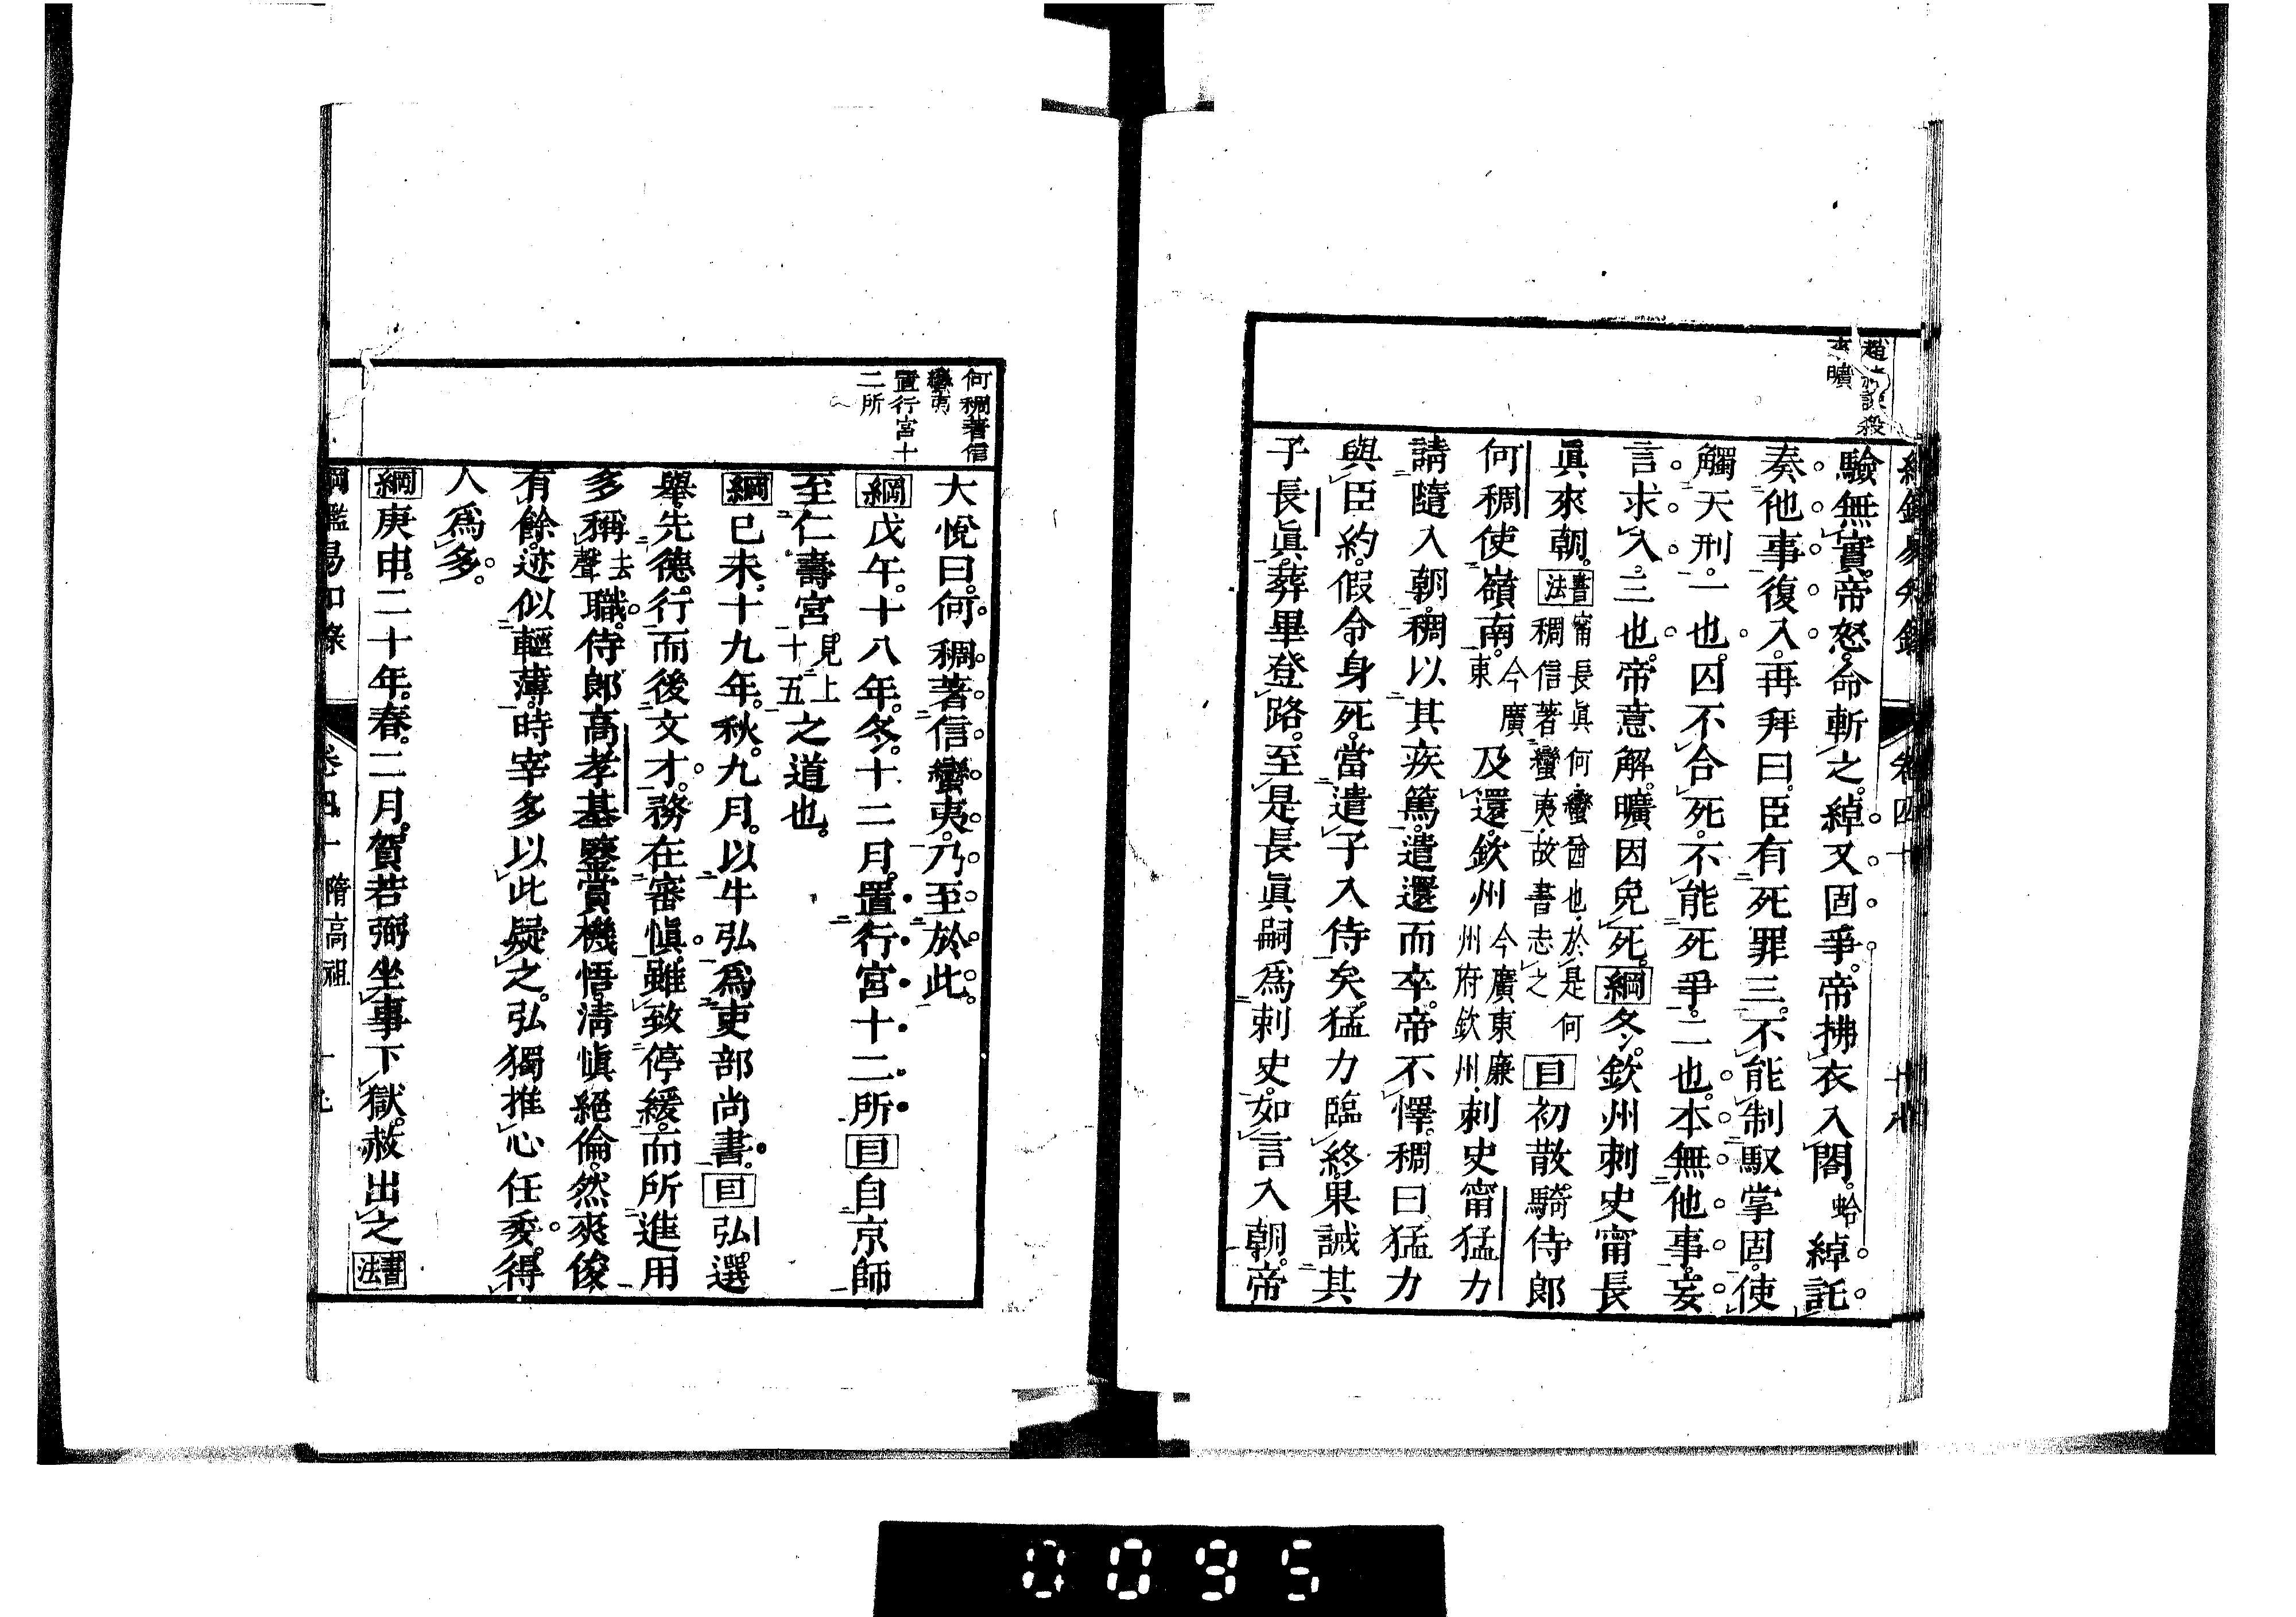 來曠
驗無實。帝怒。命斬之。綽又固爭。帝拂衣入閤。蛤綽託
奏他事復入。再拜曰。臣有死罪三。不能制馭掌固。使
觸天刑。一也。囚不合死。不能死爭。二也。本無他事。妄
言求入。三也。帝意解。曠因免死。綱冬。欽州刺史甯長
眞來朝。書法甯長眞何。蠻酋也。於是何
稠信著蠻夷。故書志之目初散騎侍郎
何稠使嶺南。今廣東及還。欽州今廣東廉州府欽州刺史甯猛力
請隨入朝。稠以其疾篤。遣還而卒。帝不懌。稠曰。猛力
與臣約。假令身死。當遣子入侍矣。猛力臨終。果誡其
子長眞。葬畢登路。至是長眞嗣爲刺史。如言入朝。帝
何稠著信
蠻夷
置行宮十
二所
大悅曰。何稠著信蠻夷。乃至於此。
綱戊午。十八年。冬。十二月。置行宮十二所目自京師
至仁壽宮見上十五之道也。
綱己未。十九年。秋。九月。以牛弘爲吏部尚書。目弘選
舉。先德行而後文才。務在審愼。雖致停緩。而所進用
多稱去聲職。侍郎高孝基。鑒賞機悟。清愼絕倫。然爽俊
有餘。迹似輕薄。時宰多以此疑之。弘獨推心任委。得
人爲多。
綱庚申。二十年。春。二月。賀若弼坐事下獄。赦出之書法
隋高祖
0095